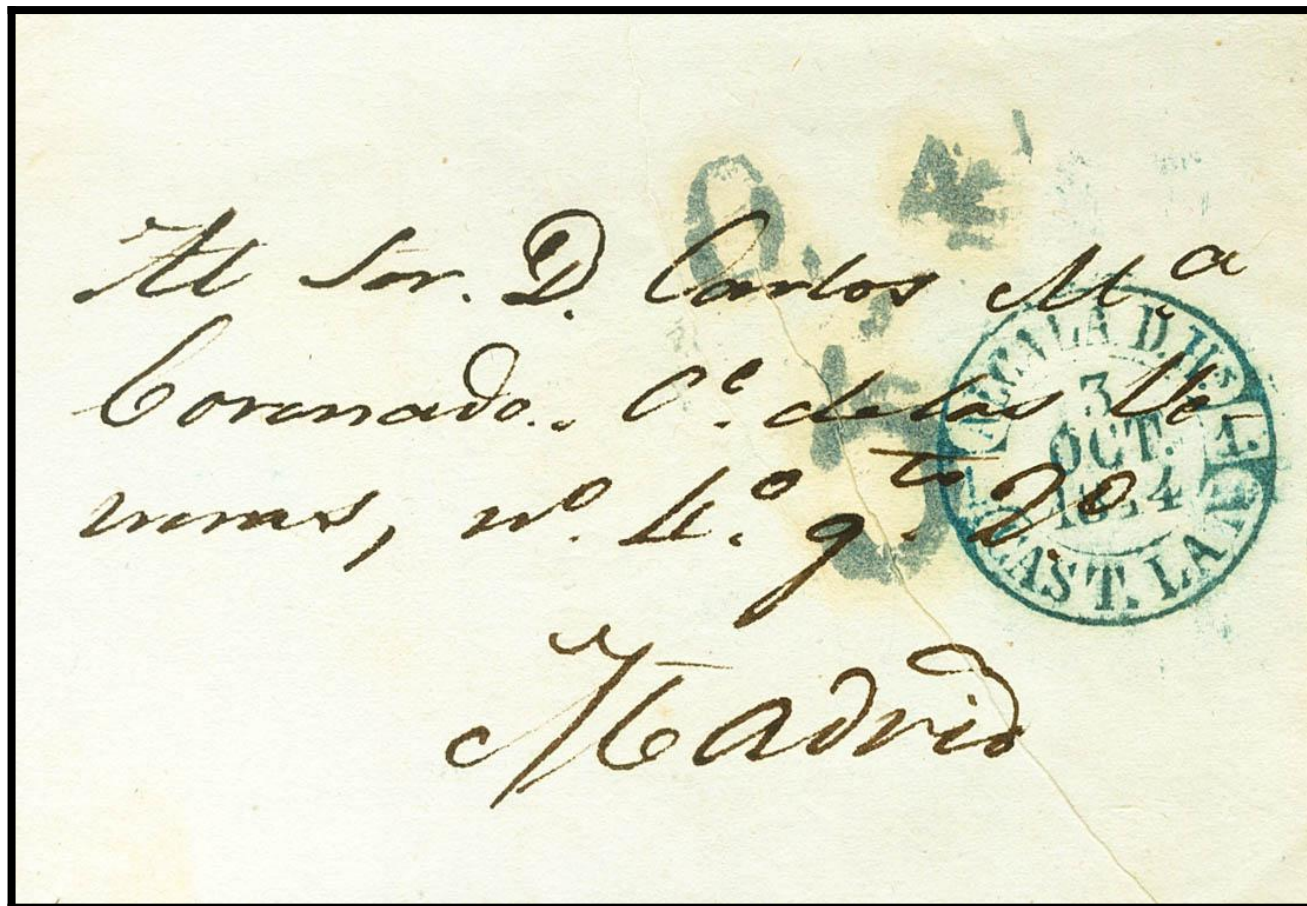 Al Sor. D. Carlos Mª
Coronado. C.e de las Ve-
neras, nº. 4.º q.to 2º
Madrid
ALCALA D. Hs
3
OCT.
1.
CAST. LA N.